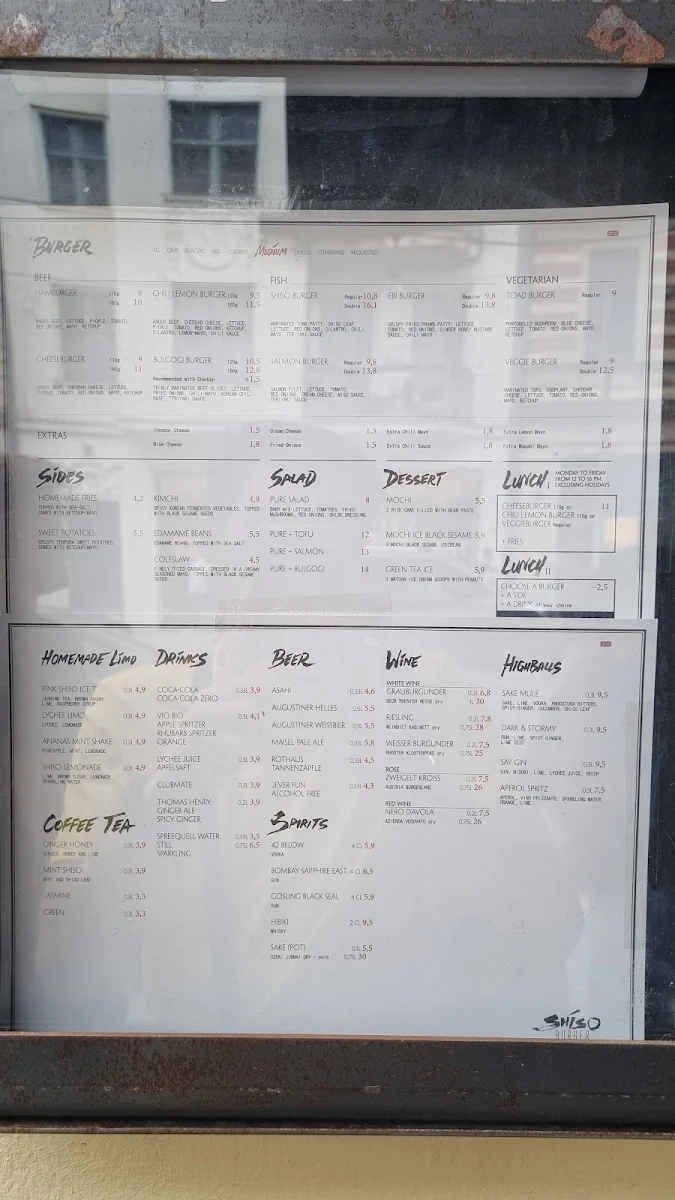 BURGER
ALL OUR BURGERS ARE COOKED MEDIUM UNLESS OTHERWISE REQUESTED
BEEF
HAMBURGER 110g 8
160g 10
ANGUS BEEF, LETTUCE, PICKLE, TOMATO,
RED ONIONS, MAYO, KETCHUP
CHEESEBURGER 110g 9
160g 11
ANGUS BEEF, CHEDDAR CHEESE, LETTUCE,
PICKLE, TOMATO, RED ONIONS, MAYO, KETCHUP
CHILI LEMON BURGER 110g 9,5
160g 11,5
ANGUS BEEF, CHEDDAR CHEESE, LETTUCE,
PICKLE, TOMATO, RED ONIONS, KETCHUP,
CILANTRO, LEMON-MAYO, CHILI SAUCE
BULGOGI BURGER 120g 10,5
180g 12,8
Recommended with Cheddar +1,5
THINLY MARINATED BEEF SLICES, LETTUCE,
FRIED ONIONS, CHILI-MAYO, KOREAN CHILI
BASE, TERIYAKI SAUCE
FISH
SHISO BURGER Regular 10,8
Double 16,1
MARINATED TUNA PATTY, SHISO LEAF
LETTUCE, RED ONIONS, CILANTRO, CHILI
MAYO, TERIYAKI SAUCE
SALMON BURGER Regular 9,8
Double 13,8
SALMON FILET, LETTUCE, TOMATO,
RED ONIONS, CREAM CHEESE, MISO SAUCE,
TERIYAKI SAUCE
EBI BURGER Regular 9,8
Double 13,8
CRISPY FRIED PRAWN PATTY, LETTUCE
TOMATO, RED ONIONS, GINGER HONEY MUSTARD
SAUCE, CHILI MAYO
VEGETARIAN
TOAD BURGER Regular 9
PORTOBELLO MUSHROOM, BLUE CHEESE,
LETTUCE, TOMATO, RED ONIONS, MAYO,
KETCHUP
VEGGIE BURGER Regular 9
Double 12,5
MARINATED TOFU, EGGPLANT, CHEDDAR
CHEESE, LETTUCE, TOMATO, RED ONIONS,
MAYO, KETCHUP
EXTRAS
Cheddar Cheese 1,5
Blue Cheese 1,8
Cream Cheese 1,5
Fried Onions 1,5
Extra Chili Mayo 1,8
Extra Chili Sauce 1,8
Extra Lemon Mayo 1,8
Extra Wasabi Mayo 1,8
SIDES
HOMEMADE FRIES 4,2
TOPPED WITH SEA-SALT
COMES WITH KETCHUP/MAYO
SWEET POTATOES 5,5
CRUSTY TEMPURA SWEET POTATOES
COMES WITH KETCHUP/MAYO
KIMCHI 4,9
SPICY KOREAN FERMENTED VEGETABLES, TOPPED
WITH BLACK SESAME SEEDS
EDAMAME BEANS 5,5
EDAMAME BEANS, TOPPED WITH SEA SALT
COLESLAW 4,5
FINELY DICED CABBAGE, DRESSED IN A CREAMY
SEASONED MAYO, TOPPED WITH BLACK SESAME
SEEDS
SALAD
PURE SALAD 8
BABY MIX LETTUCE, TOMATOES, FRIED
MUSHROOMS, RED ONIONS, SHISO DRESSING
PURE + TOFU 12
PURE + SALMON 13
PURE + BULGOGI 14
DESSERT
MOCHI 5,5
2 RICE CAKE FILLED WITH BEAN PASTE
MOCHI ICE BLACK SESAME 5,9
3 MOCHI BLACK SESAME ICECREAM
GREEN TEA ICE 5,9
3 MATCHA ICE CREAM SCOOPS WITH PEANUTS
LUNCH I MONDAY TO FRIDAY
FROM 12 TO 16 PM
EXCLUDING HOLIDAYS
CHEESEBURGER 110g or 11
CHILI LEMON BURGER 110g or
VEGGIEBURGER Regular
+ FRIES
LUNCH II
CHOOSE A BURGER -2,5
+ A SIDE
+ A DRINK of your choice
HOMEMADE LIMO
PINK SHISO ICE T 0,3L 4,9
JASMINE TEA, BROWN SUGAR,
LIME, RASPBERRY SYRUP
LYCHEE LIMO 0,3L 4,9
LYCHEE, LEMONADE
ANANAS MINT SHAKE 0,3L 4,9
PINEAPPLE, MINT, LEMONADE
SHISO LEMONADE 0,3L 4,9
LIME, BROWN SUGAR, LEMONADE,
SPARKLING WATER
COFFEE TEA
GINGER HONEY 0,3L 3,9
GINGER, HONEY AND LIME
MINT SHISO 0,3L 3,9
MINT AND SHISO LEAF
JASMINE 0,3L 3,3
GREEN 0,3L 3,3
DRINKS
COCA-COLA 0,33L 3,9
COCA-COLA ZERO
VIO BIO 0,3L 4,1
APPLE SPRITZER
RHUBARB SPRITZER
ORANGE
LYCHEE JUICE 0,3L 3,9
APFELSAFT
CLUBMATE 0,3L 3,9
THOMAS HENRY 0,2L 3,9
GINGER ALE
SPICY GINGER
SPREEQUELL WATER 0,33L 3,5
STILL 0,75L 6,5
SPARKLING
BEER
ASAHI 0,33L 4,6
AUGUSTINER HELLES 0,5L 5,5
AUGUSTINER WEISSBIER 0,5L 5,5
MAISEL PALE ALE 0,33L 5,8
ROTHAUS 0,33L 4,5
TANNENZÄPFLE
JEVER FUN 0,33L 4,3
ALCOHOL FREE
SPIRITS
42 BELOW 4 CL 5,9
VODKA
BOMBAY SAPPHIRE EAST 4 CL 6,5
GIN
GOSLING BLACK SEAL 4 CL 5,9
RUM
HIBIKI 2 CL 9,5
WHISKY
SAKE (POT) 0,1L 5,5
OZEKI JUNMAI DRY - warm 0,75L 30
WINE
WHITE WINE
GRAUBURGUNDER 0,2L 6,8
BECK RHEINHESSE dry 1L 30
RIESLING 0,2L 7,8
WEINGUT KABINETT dry 0,75L 28
WEISSER BURGUNDER 0,2L 7,5
RHODTER KLOSTERPFAD dry 0,75L 25
ROSÉ
ZWEIGELT KROISS 0,2L 7,5
AUSTRIA BURGENLAND 0,75L 26
RED WINE
NERO D'AVOLA 0,2L 7,5
AZIENDA VESUVATO dry 0,75L 26
HIGHBALLS
SAKE MULE 0,3L 9,5
SAKE, LIME, VODKA, ANGOSTURA BITTERS,
SPICY GINGER, CUCUMBER, SHISO LEAF
DARK & STORMY 0,3L 9,5
RUM, LIME, SPICY GINGER,
LIME ZEST
SAY GIN 0,3L 9,5
GIN, MIDORI, LIME, LYCHEE JUICE, CUCUM
APEROL SPRITZ 0,3L 7,5
APEROL, VINO FRIZZANTE, SPARKLING WATER,
ORANGE, LIME
SHISO
BURGER